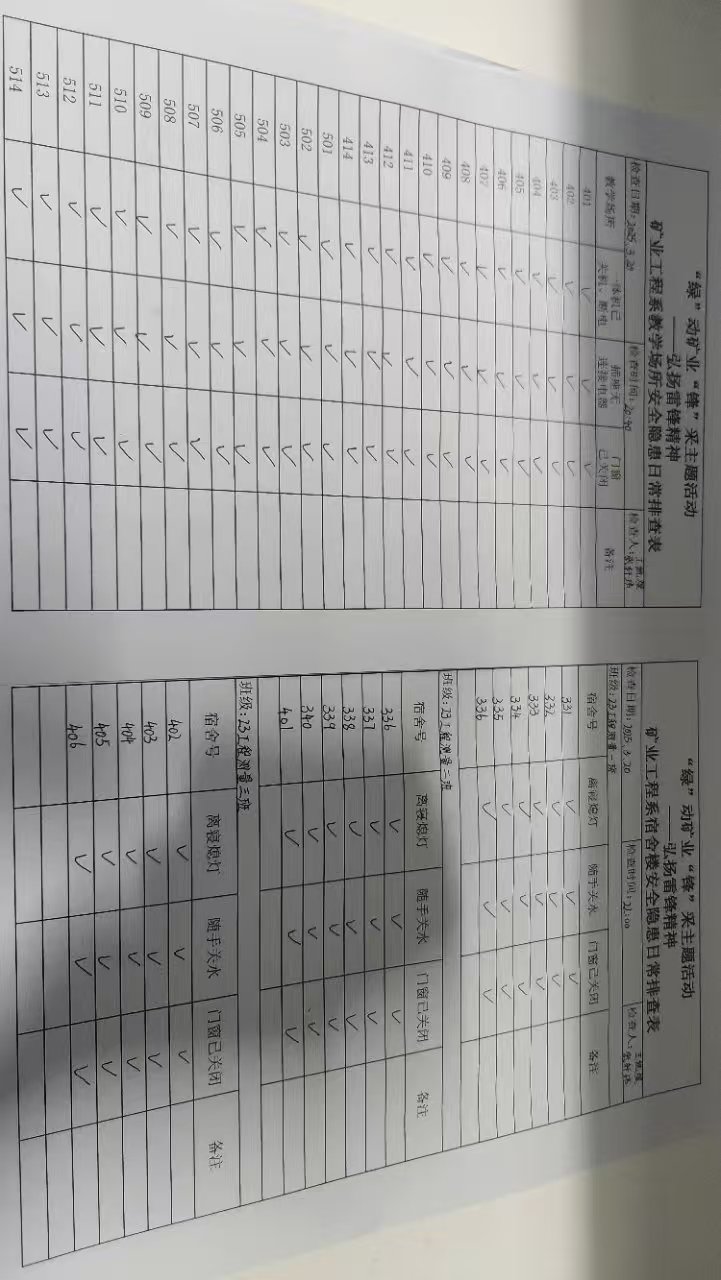 “绿”动矿业“锋”采主题活动
——弘扬雷锋精神
矿业工程系教学场所安全隐患日常排查表
检查日期：2025.3.20 检查时间：20:40 检查人：
教学场所 一体机已关机、断电 插座无连接电器 门窗已关闭 备注
401 ✓ ✓ ✓
402 ✓ ✓ ✓
403 ✓ ✓ ✓
404 ✓ ✓ ✓
405 ✓ ✓ ✓
406 ✓ ✓ ✓
407 ✓ ✓ ✓
408 ✓ ✓ ✓
409 ✓ ✓ ✓
410 ✓ ✓ ✓
411 ✓ ✓ ✓
412 ✓ ✓ ✓
413 ✓ ✓ ✓
414 ✓ ✓ ✓
501 ✓ ✓ ✓
502 ✓ ✓ ✓
503 ✓ ✓ ✓
504 ✓ ✓ ✓
505 ✓ ✓ ✓
506 ✓ ✓ ✓
507 ✓ ✓ ✓
508 ✓ ✓ ✓
509 ✓ ✓ ✓
510 ✓ ✓ ✓
511 ✓ ✓ ✓
512 ✓ ✓ ✓
513 ✓ ✓ ✓
514 ✓ ✓ ✓
“绿”动矿业“锋”采主题活动
——弘扬雷锋精神
矿业工程系宿舍楼安全隐患日常排查表
检查日期：2025.3.20 检查时间：21:00 检查人：
班级：23工程测量一班
宿舍号 离寝熄灯 随手关水 门窗已关闭 备注
331 ✓ ✓ ✓
332 ✓ ✓ ✓
333 ✓ ✓ ✓
334 ✓ ✓ ✓
335 ✓ ✓ ✓
336 ✓ ✓ ✓
班级：23工程测量二班
宿舍号 离寝熄灯 随手关水 门窗已关闭 备注
336 ✓ ✓ ✓
337 ✓ ✓ ✓
338 ✓ ✓ ✓
339 ✓ ✓ ✓
340 ✓ ✓ ✓
401 ✓ ✓ ✓
班级：23工程测量三班
宿舍号 离寝熄灯 随手关水 门窗已关闭 备注
402 ✓ ✓ ✓
403 ✓ ✓ ✓
404 ✓ ✓ ✓
405 ✓ ✓ ✓
406 ✓ ✓ ✓